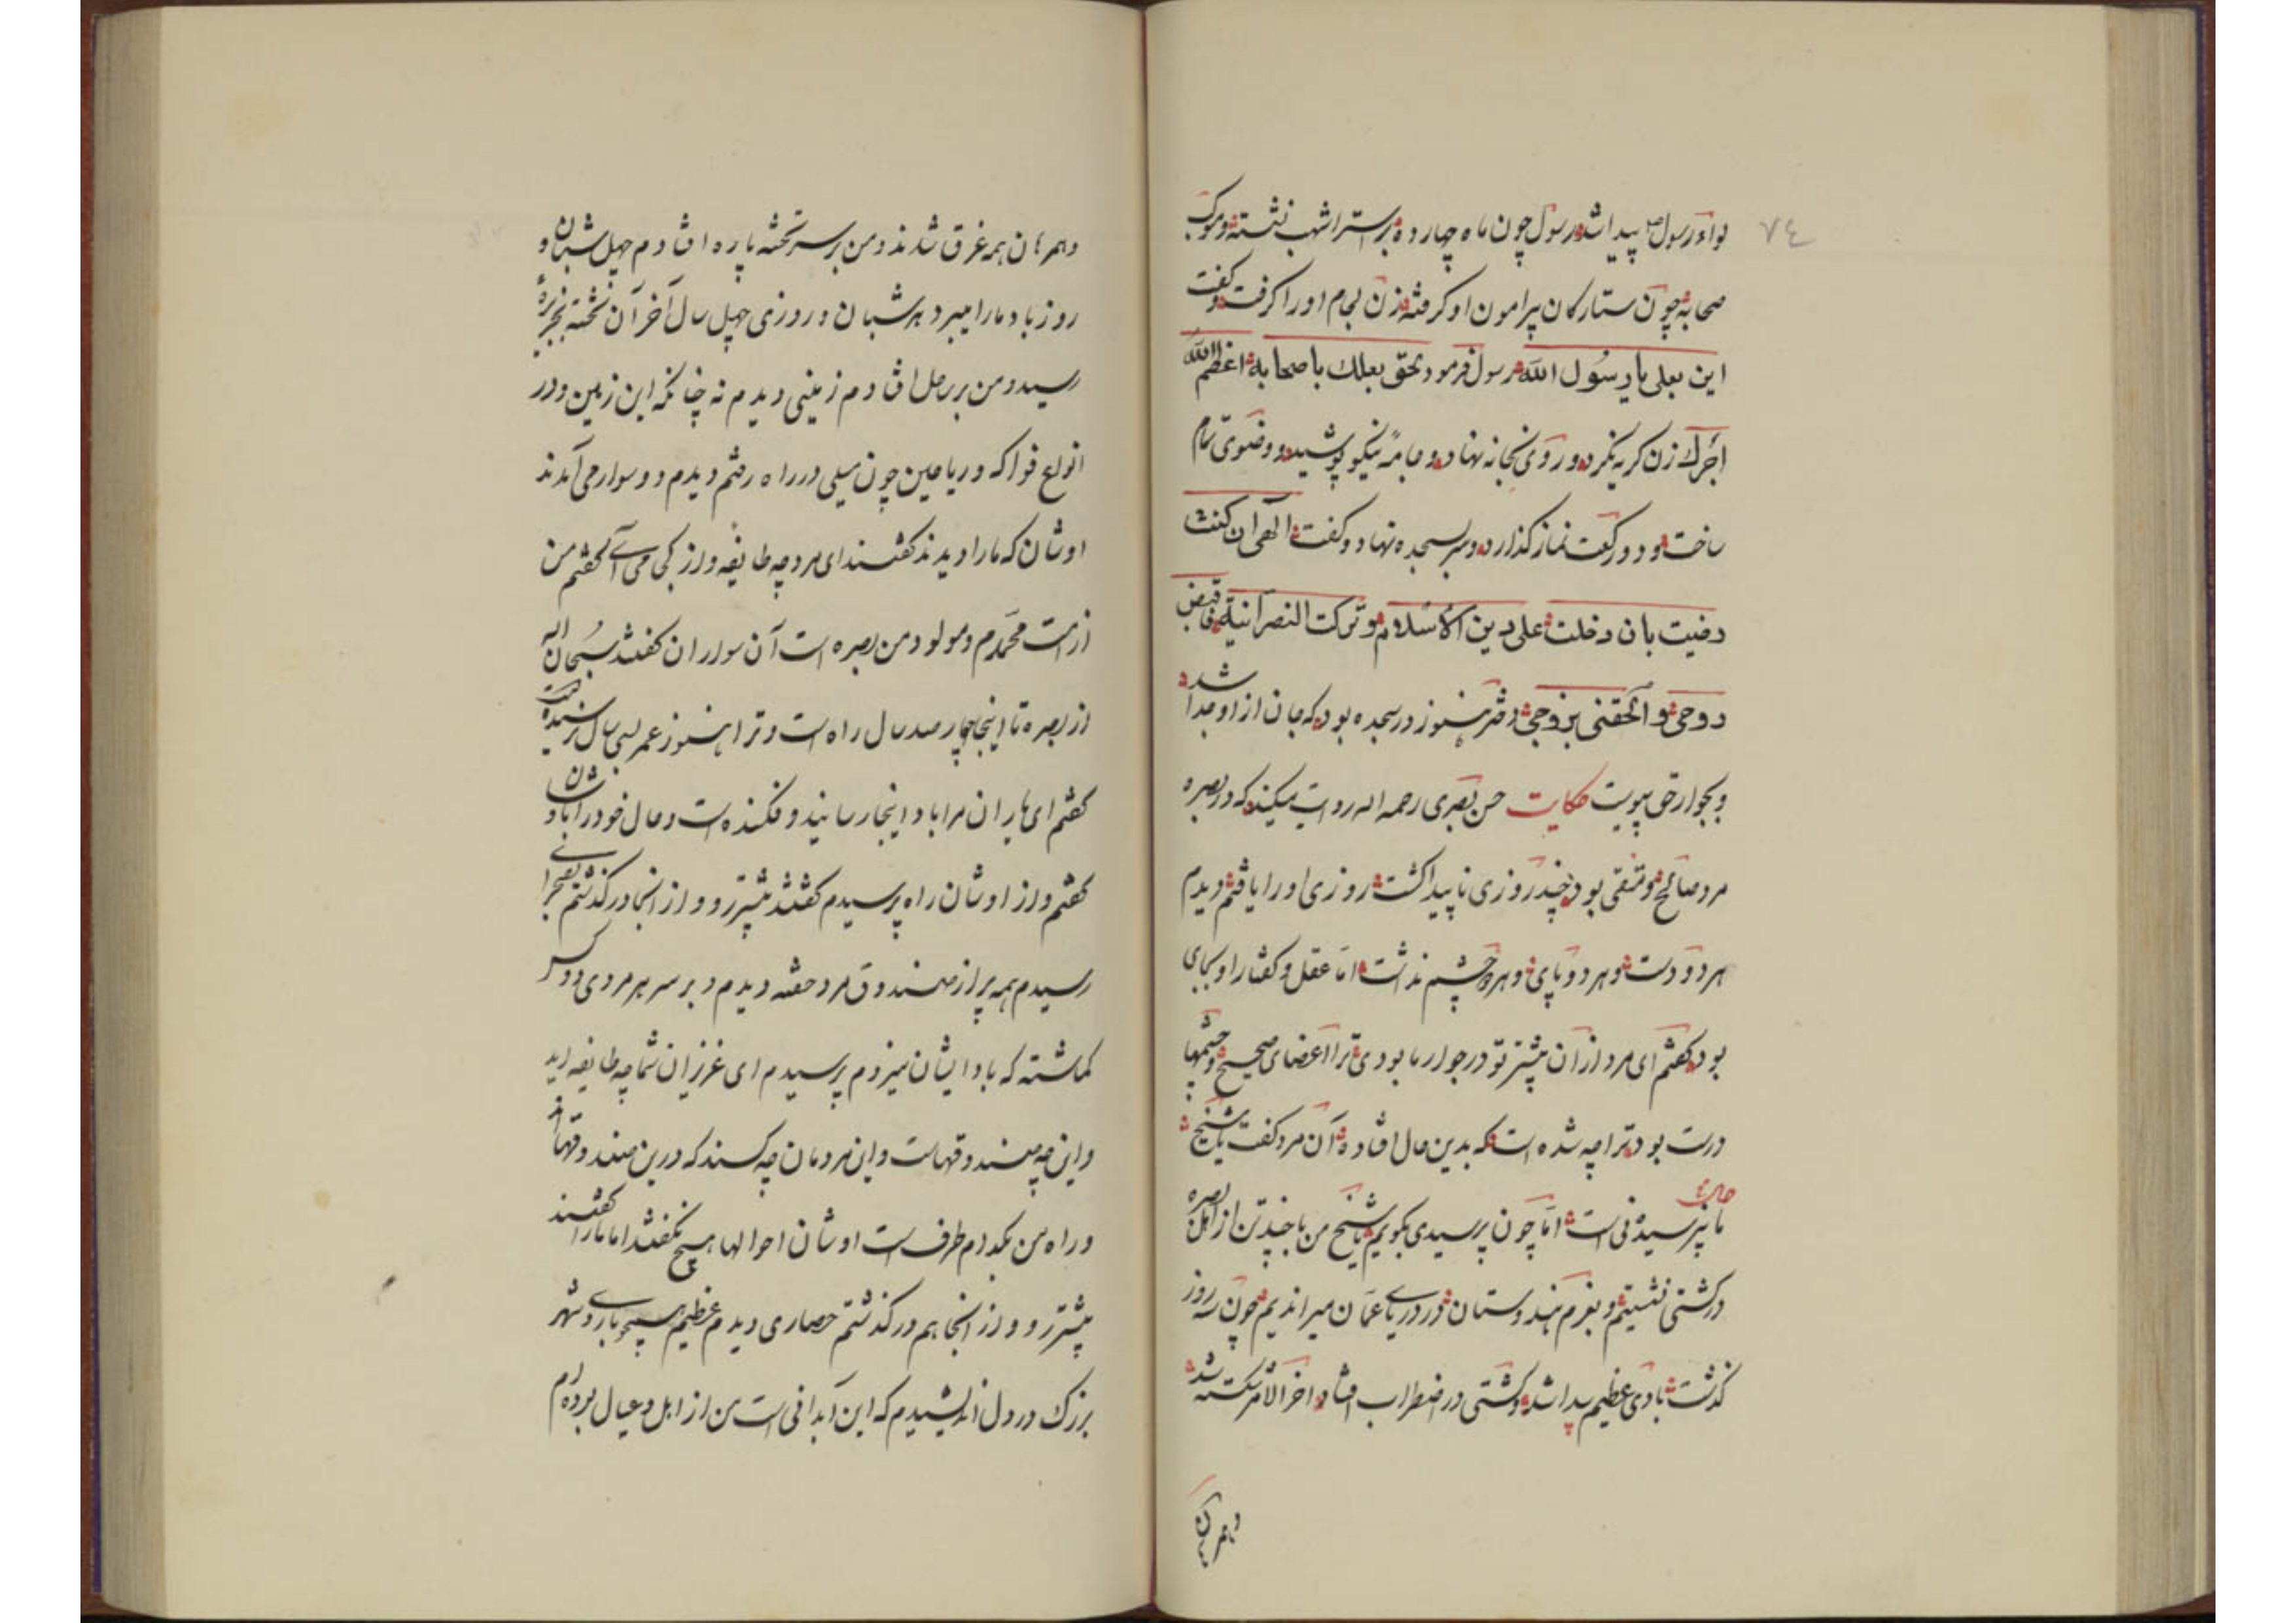 ۷٤
لواء رسول ص پیدا شد رسول چون ماه چهارده بر استر اشهب نشسته و موکب
صحابه چون ستارکان پیرامون او کرفته زن لجام او را کرفت و کفت
این بعلی یا رسول الله رسول فرمود بحق بعلك با صحابه اعظم الله
اجرك زن کریه نکرد و روی بخانه نهاد و جامهٔ نیکو پوشید و وضوی تام
ساخت و دو رکعت نماز کذارد و سر بسجده نهاد و کفت الهی ان کنت
رضیت بان دخلت علی دین الاسلام و ترکت النصرانیة فاقبض
روحی و الحقنی بزوجی دختر هنوز در سجده بود که جان از او جدا شد
و بجوار حق پیوست حکایت حسن بصری رحمه الله روایت میکند که در بصره
مرد صالح و متقی بود چند روزی ناپیدا کشت روزی او را یافتم دیدم
هر دو دست و هر دو پای و هر دو چشم نداشت اما عقل و کفتار او بجای
بود کفتم ای مرد از آن پیشتر تو در جوار ما بودی ترا اعضای صحیح و چشمها
درست بود ترا چه شده است که بدین حال افتاده آن مرد کفت یا شیخ
حال ما نپرسیدنی است اما چون پرسیدی بکویم یا شیخ من با چند تن از اهل بصره
در کشتی نشستیم و بعزم هندوستان در دریای عمان میراندیم چون سه روز
کذشت بادی عظیم پیدا شد و کشتی در اضطراب افتاد اخر الامر شکسته شد
و همرهان
و همرهان همه غرق شدند و من بر سر تخته پاره افتادم چهل شبان و
روز باد مارا میبرد هر شبان و روزی چهل سال آخر آن تخته بجزیرهٔ
رسید و من بر ساحل افتادم زمینی دیدم نه چنانکه این زمین و در
انواع فواکه و ریاحین چون میلی در راه رفتم دیدم دو سوار می آمدند
اوشان که مارا دیدند کفتند ای مرد چه طایفه و از کجا می آئی کفتم من
از امت محمدم و مولود من بصره است آن سواران کفتند سبحان الله
از بصره تا اینجا چهار صد سال راه است و ترا هنوز عمر سی سال نرسیده است
کفتم ای یاران مرا باد اینجا رسانید و فکنده است و حال خود را با اوشان
کفتم و از اوشان راه پرسیدم کفتند پیشتر رو و از آنجا در کذشتم بصحرائی
رسیدم همه پر از صندوق مرد خفته دیدم و بر سر هر مردی دو کس
کماشته که باد ایشان میزدم پرسیدم ای عزیزان شما چه طایفه اید
و این چه صندوقهاست و این مردمان چه کسند که درین صندوقها
و راه من بکدام طرف است اوشان احوالها هیچ نکفتند اما مارا کفتند
پیشتر رو و از آنجا هم در کذشتم حصاری دیدم عظیم و شهر
بزرك در دل اندیشیدم که این آبادانی است من از اهل و عیال